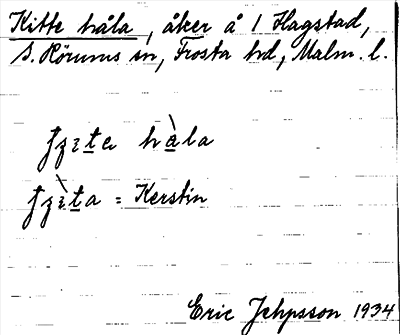 Kitte håla, åker å 1 Hagstad,
S. Rörums sn, Frosta hd, Malm. l.
hàla
= Kerstin
Eric Jeppsson 1934